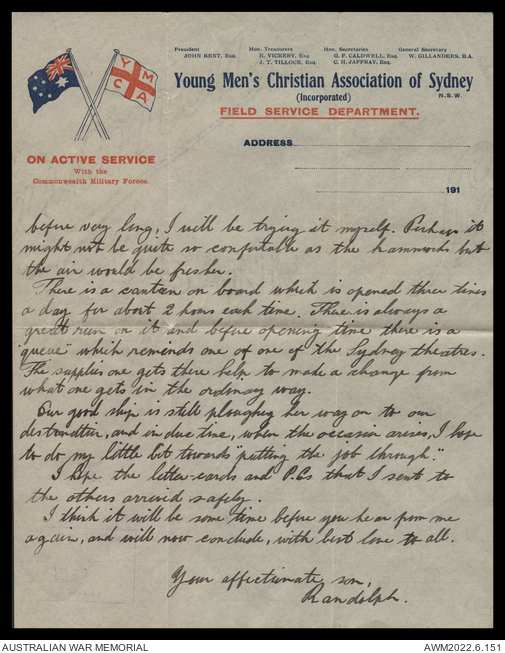 President
JOHN KENT, Esq.
Hon. Treasurers
E. VICKERY, Esq.
J. T. TILLOCK, Esq.
Hon. Secretaries
G. F. CALDWELL, Esq.
C. H. JAFFRAY, Esq.
General Secretary
W. GILLANDERS, B.A.
Y M
C A
Young Men's Christian Association of Sydney
(Incorporated)
N.S.W.
FIELD SERVICE DEPARTMENT.
ON ACTIVE SERVICE
With the
Commonwealth Military Forces.
ADDRESS
191
before very long, I will be trying it myself. Perhaps it
might not be quite so comfortable as the hammocks but
the air would be fresher.
There is a canteen on board which is opened three times
a day for about 2 hours each time. There is always a
great run on it and before opening time there is a
"queue" which reminds one of one of the Sydney theatres.
The supplies one gets there help to make a change from
what one gets in the ordinary way.
Our good ship is still ploughing her way on to our
destination, and in due time, when the occasion arises, I hope
to do my little bit towards "putting the job through."
I hope the letter-cards and P.Cs that I sent to
the others arrived safely.
I think it will be some time before you hear from me
again, and will now conclude, with best love to all.
Your affectionate son,
Randolph.
AUSTRALIAN WAR MEMORIAL
AWM2022.6.151